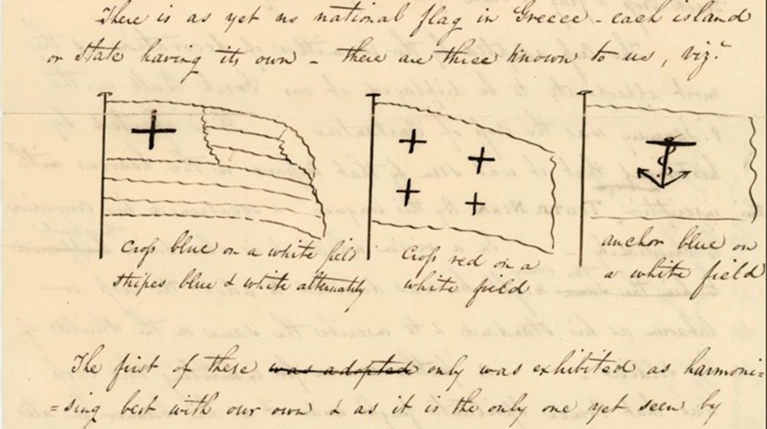 There is as yet no national flag in Greece - each island
or state having its own - there are three known to us, viz.t
cross blue on a white field
stripes blue & white alternately
cross red on a
white field
anchor blue on
a white field
The first of these was adopted only was exhibited as harmoni=
=sing best with our own & as it is the only one yet seen by